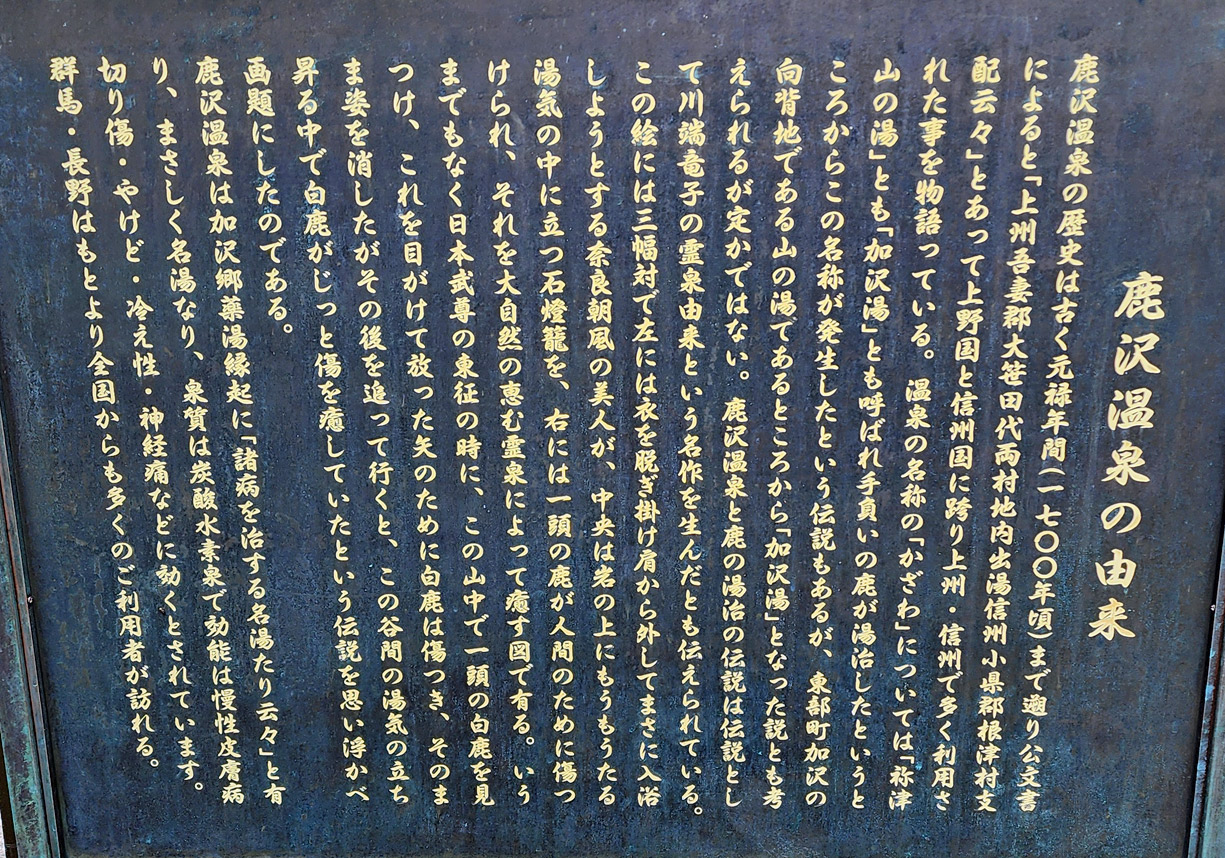 鹿沢温泉の由来
鹿沢温泉の歴史は古く元禄年間(一七〇〇年頃)まで遡り公文書
によると「上州吾妻郡大笹田代両村地内出湯信州小県郡根津村支
配云々」とあって上野国と信州国に跨り上州・信州で多く利用さ
れた事を物語っている。温泉の名称の「かざわ」については「祢津
山の湯」とも「加沢湯」とも呼ばれ手負いの鹿が湯治したというと
ころからこの名称が発生したという伝説もあるが、東部町加沢の
向背地である山の湯であるところから「加沢湯」となった説とも考
えられるが定かではない。鹿沢温泉と鹿の湯治の伝説は伝説とし
て川端竜子の霊泉由来という名作を生んだとも伝えられている。
この絵には三幅対で左には衣を脱ぎ掛け肩から外してまさに入浴
しようとする奈良朝風の美人が、中央は岩の上にもうもうたる
湯気の中に立つ石燈籠を、右には一頭の鹿が人間のために傷つ
けられ、それを大自然の恵む霊泉によって癒す図で有る。いう
までもなく日本武尊の東征の時に、この山中で一頭の白鹿を見
つけ、これを目がけて放った矢のために白鹿は傷つき、そのま
ま姿を消したがその後を追って行くと、この谷間の湯気の立ち
昇る中で白鹿がじっと傷を癒していたという伝説を思い浮かべ
画題にしたのである。
鹿沢温泉は加沢郷薬湯縁起に「諸病を治する名湯たり云々」と有
り、まさしく名湯なり、泉質は炭酸水素泉で効能は慢性皮膚病
切り傷・やけど・冷え性・神経痛などに効くとされています。
群馬・長野はもとより全国からも多くのご利用者が訪れる。